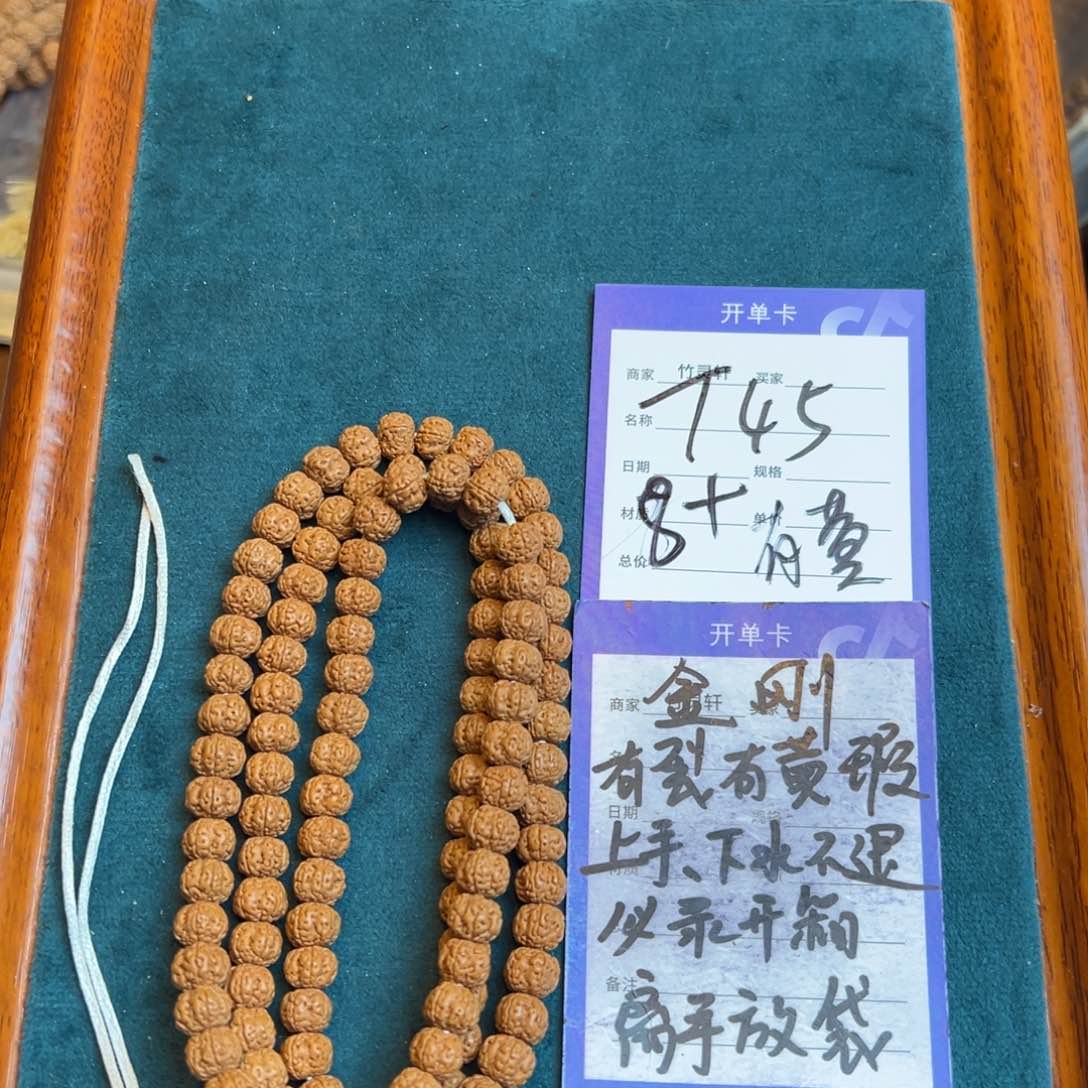 开单卡
商家 竹灵轩 买家
名称
745
日期 规格
材质 单价
8+ 有黄
总价
开单卡
商家 轩
金刚
有裂有黄瑕
日期 规格
上手、下水不退
必录开箱
备注
离手放袋